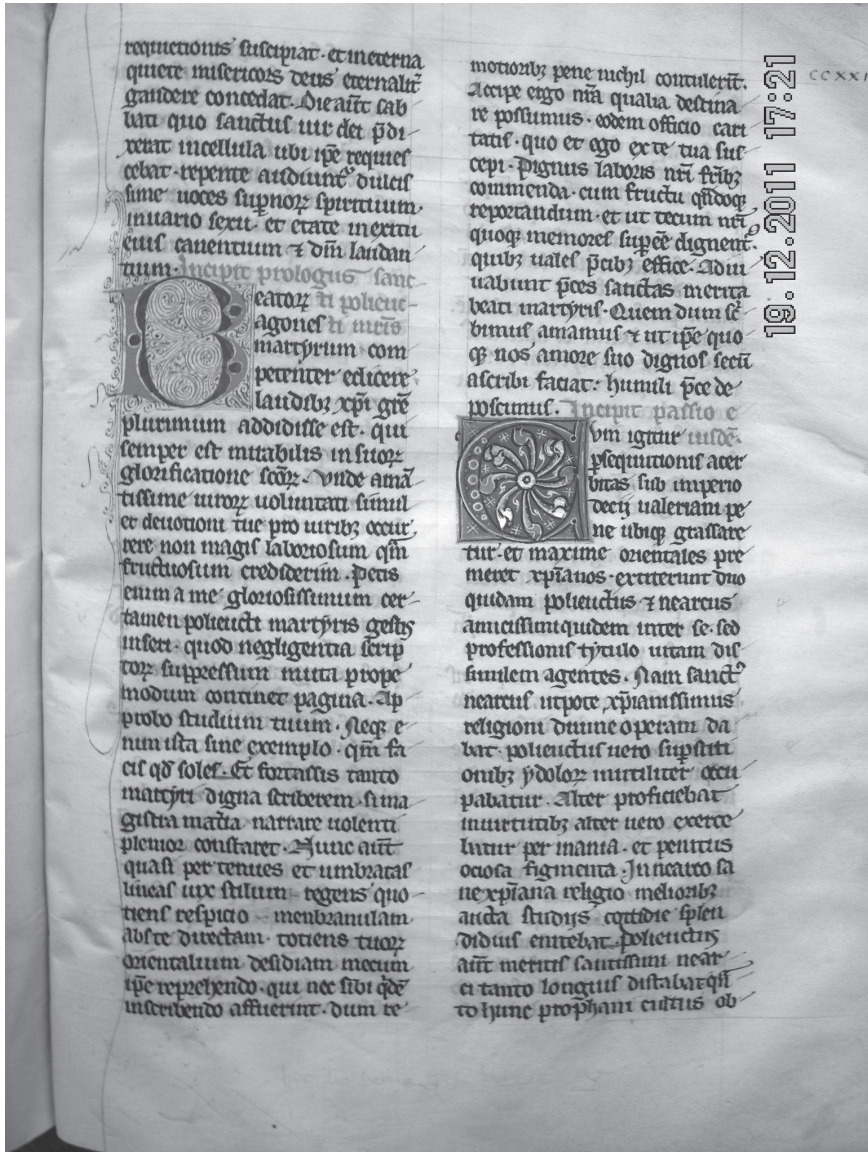 requietionis suscipiat. et in eterna
quiete misericors deus eternalit̃
gaudere concedat. Die aut̃ sab
bati quo sanctus uir dei p̃di
xerat in cellula ubi ip̃e requies
cebat. repente audiunt᷑ dulcis
sime uoces sup̃noꝝ spirituum.
uario sexu. et etate in exitu
eius canentium ⁊ dñm laudan
tium. Incipit prologus sanc
Beatoꝝ ti polieuc
agones ti mr̃is
martyrum com
petenter edicere
laudibꝫ xp̃i gr̃e
plurimum addidisse est. qui
semper est mirabilis in suoꝝ
glorificatione sc̃oꝝ. Unde amã
tissime uiroꝝ uoluntati simul
et deuotioni tue pro uiribꝫ occur
rere non magis laboriosum qm̃
fructuosum crediderim. Petis
enim a me gloriosissimum cer
tamen polieucti martyris gestis
inseri. quod negligentia scrip
toꝝ suppressum muta prope
modum continet pagina. Ap
probo studium tuum. Neqꝫ e
nim ista sine exemplo. qm̃ fa
cis qđ soles. Et fortassis tanto
martyri digna scriberem. si ma
gistra mat̃ia narrare uolenti
plenior constaret. Nunc aut̃
quasi per tenues et umbratas
lineas uix stilum regens quo
tiens respicio menbranulam
abs te directam. totiens tuoꝝ
orientalium desidiam mecum
ip̃e reprehendo. qui nec sibi q̃dẽ
in scribendo affuerint. dum re
CCXXI
motioribꝫ pene nichil contulerit̃.
Accipe ergo nr̃a qualia destina
re possumus. eodem officio cari
tatis. quo et ego ex te tua sus
cepi. Pignus laboris nr̃i fr̃ibꝫ
commenda. cum fructu qñdoqꝫ
reportandum. et ut tecum nr̃i
quoqꝫ memores sup̃ẽẽ dignent᷑.
quibꝫ uales p̃cibꝫ effice. Adiu
uabunt p̃ces sanctas merita
beati martyris. Quem dum sc̃
bimus amamus ⁊ ut ip̃e quo
qꝫ nos amore suo dignos secũ
ascribi faciat. humili p̃ce de
poscimus. Incipit passio e
Cum igitur iusdẽ.
p̃sequutionis acer
bitas sub imperio
decii ualeriani pe
ne ubiqꝫ grassare
tur. et maxime orientales pre
meret xp̃ianos. extiterunt duo
quidam polieuctus ⁊ nearcus
amicissimi quidem inter se. sed
professionis tytulo uitam dis
similem agentes. Nam sanct᷒
nearcus utpote xp̃ianissimus
religioni diuine operam da
bat. polieuctus uero sup̃stiti
onibꝫ ydoloꝝ inutiliter occu
pabatur. Alter proficiebat
in uirtutibꝫ alter uero exerce
batur per inania. et penitus
ociosa figmenta. In nearco sa
ne xp̃iana religio melioribꝫ
aucta studiis cottidie splen
didius enitebat. Polieuctus
aut̃ meritis sautissimi near
ci tanto longius distabat q̃n
to hunc prophani cultus ob
19.12.2011 17:21